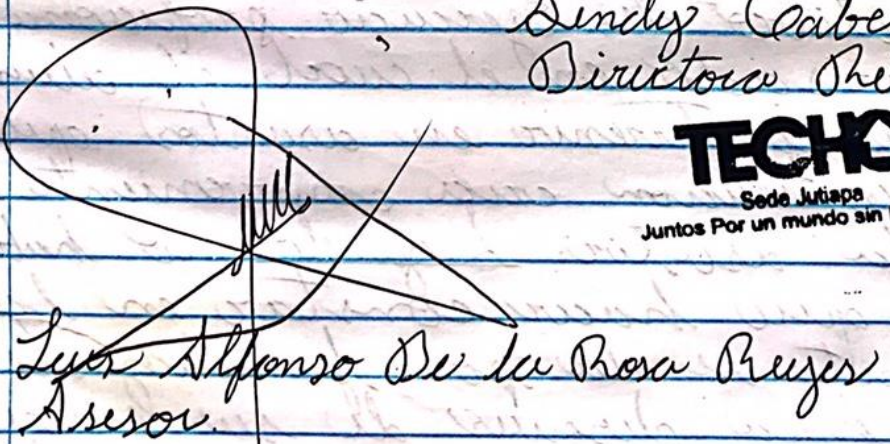 Sindy Cabe
Directora Re
TECHO
Sede Jutiapa
Juntos Por un mundo sin
Luis Alfonso De la Rosa Reyes
Asesor.